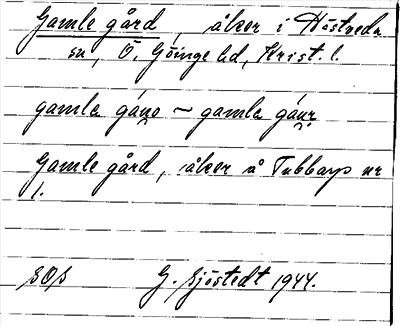 Gamle gård, åker i Hästveda
sn, Ö. Göinge hd, Krist. l.
gamla gáno ~ gamla gáur
Gamle gård, åker å Tubbarp nr
1.
SOS G. Sjöstedt 1944.